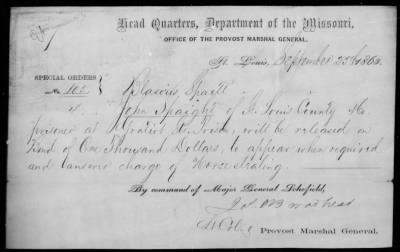 Head Quarters, Department of the Missouri,
OFFICE OF THE PROVOST MARSHAL GENERAL.
St. Louis, September 22d 1863.
SPECIAL ORDERS
No. 102
Blasius Spaett
John Spaight of St Louis County Mo
prisoner at Gratiot St. Prison, will be released on
bond of One Thousand Dollars, to appear when required
and answer charge of Horse stealing.
By command of Major General Schofield,
Provost Marshal General.